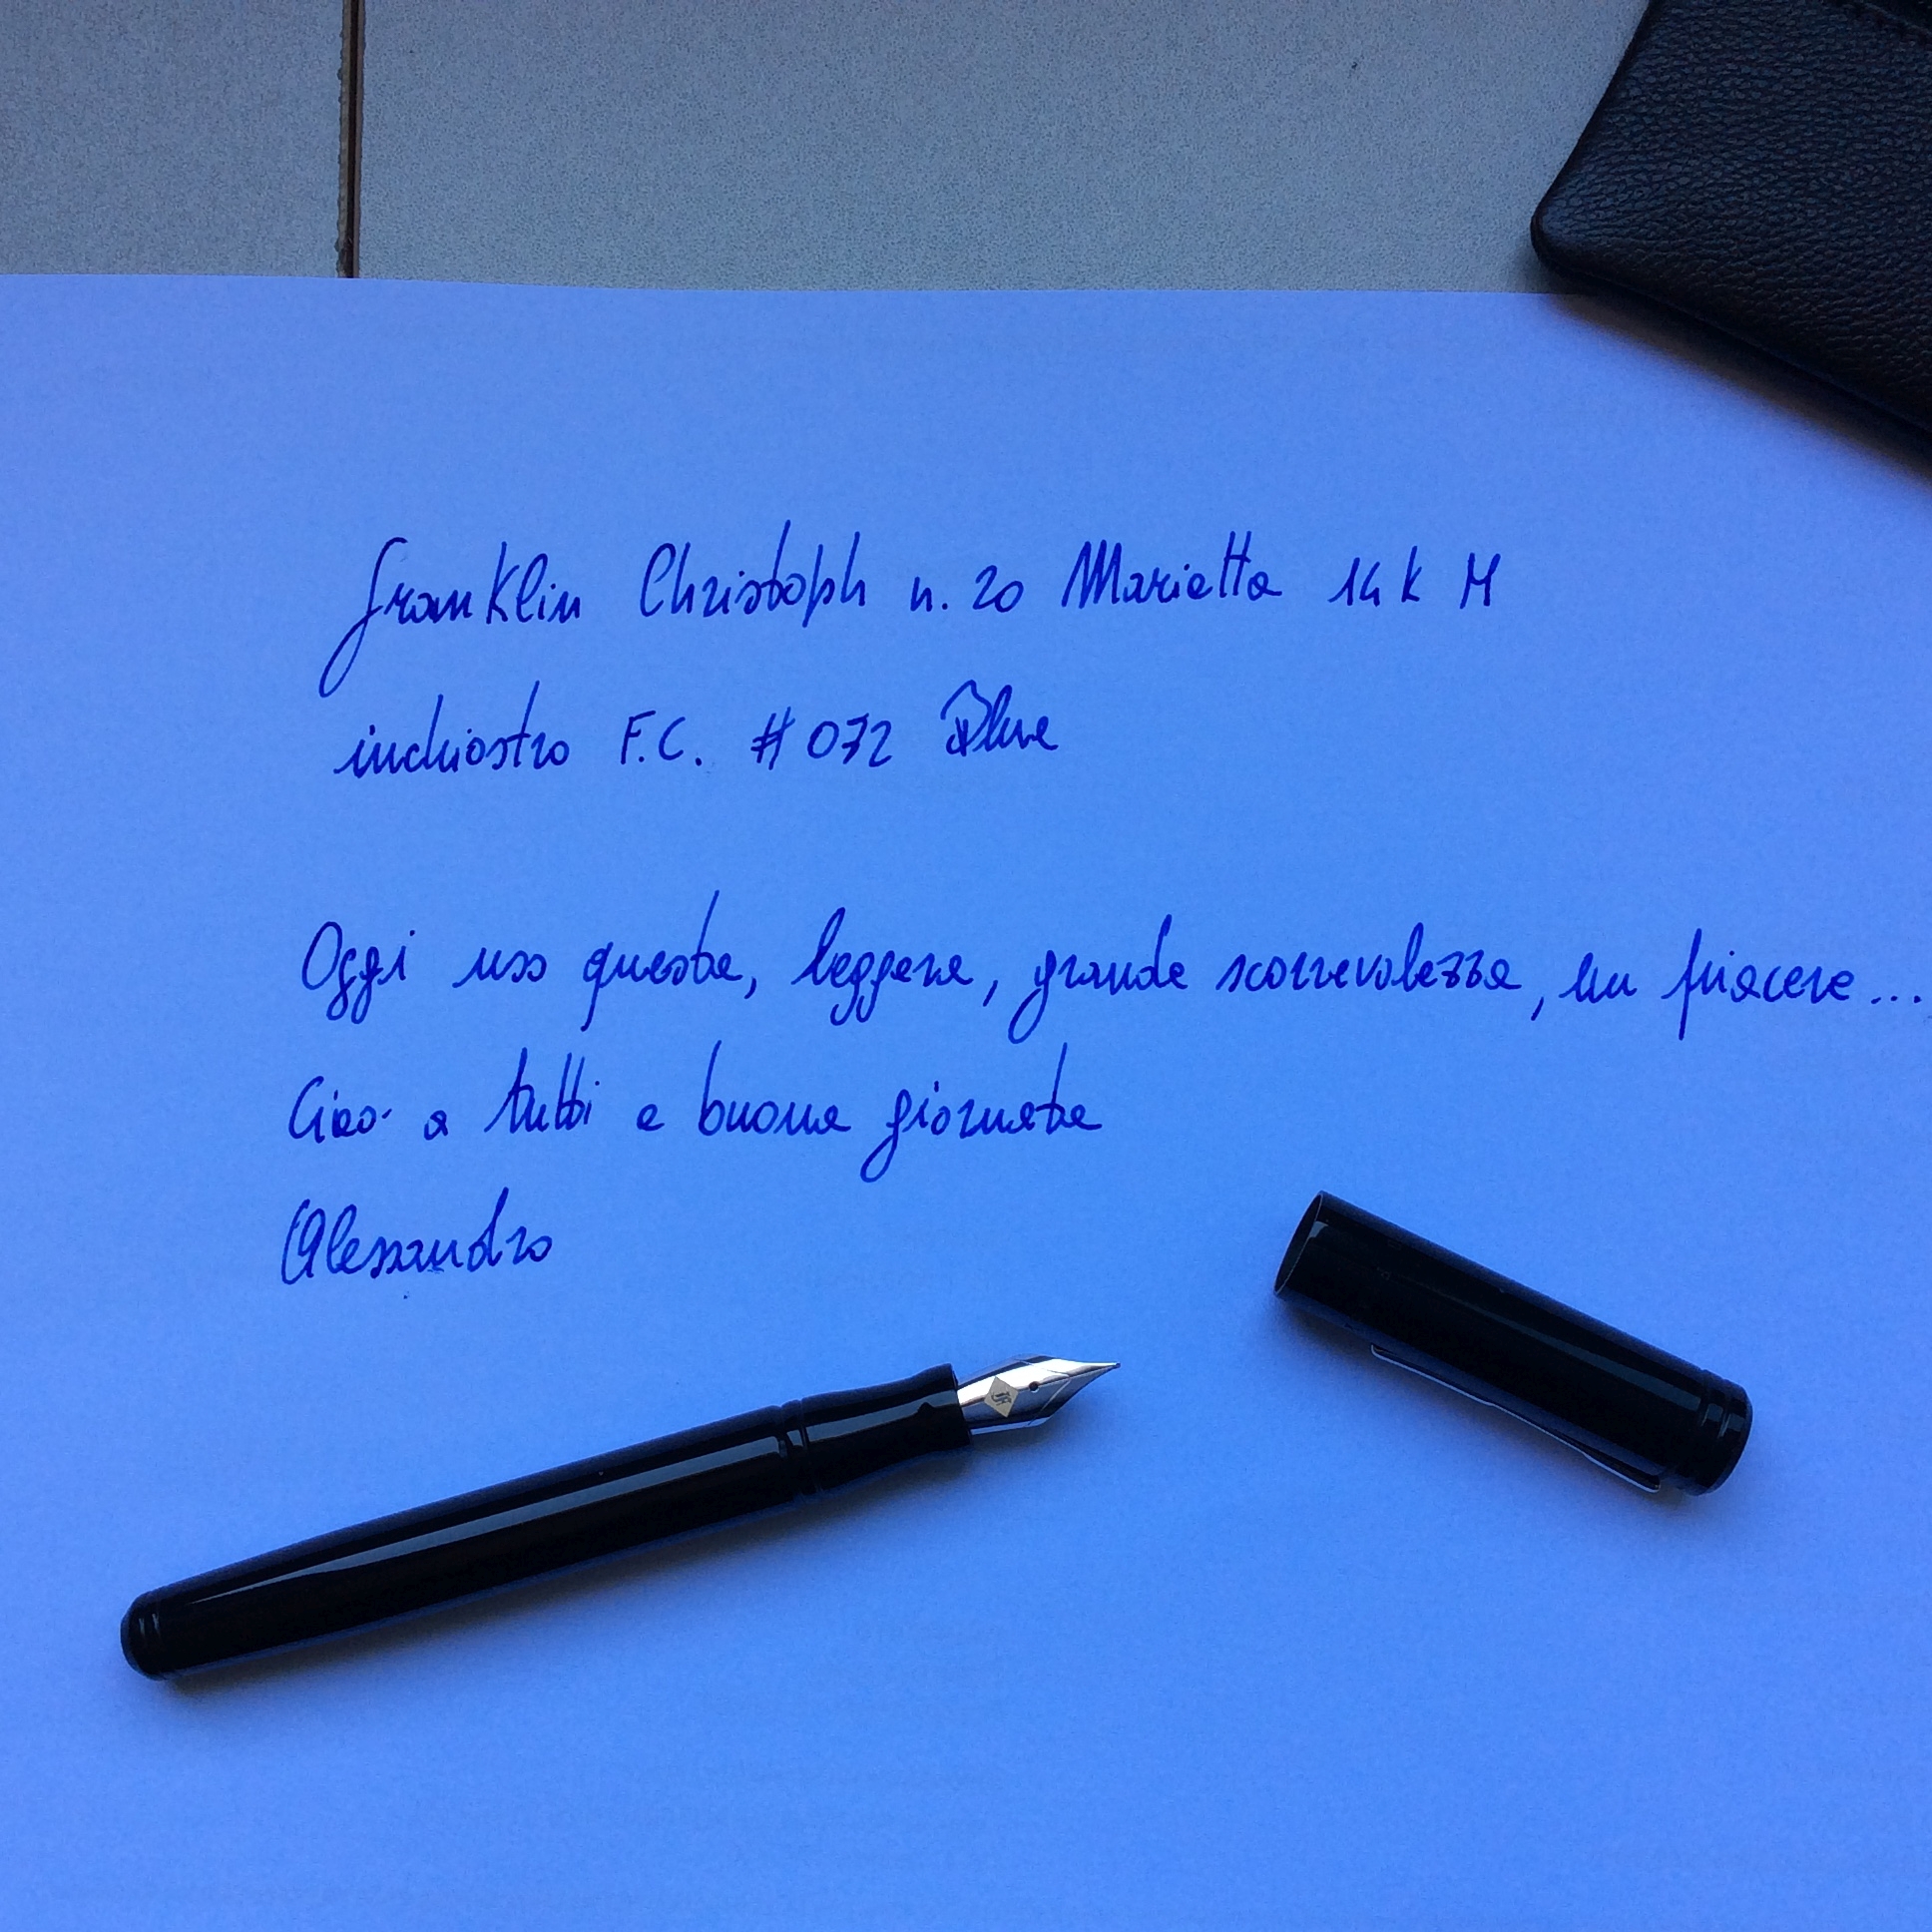 Franklin Christoph n. 20 Marietta 14 k M
inchiostro F.C. #072 Blue
Oggi uso questa, leggera, grande scorrevolezza, un piacere...
Ciao a tutti e buona giornata
Alessandro